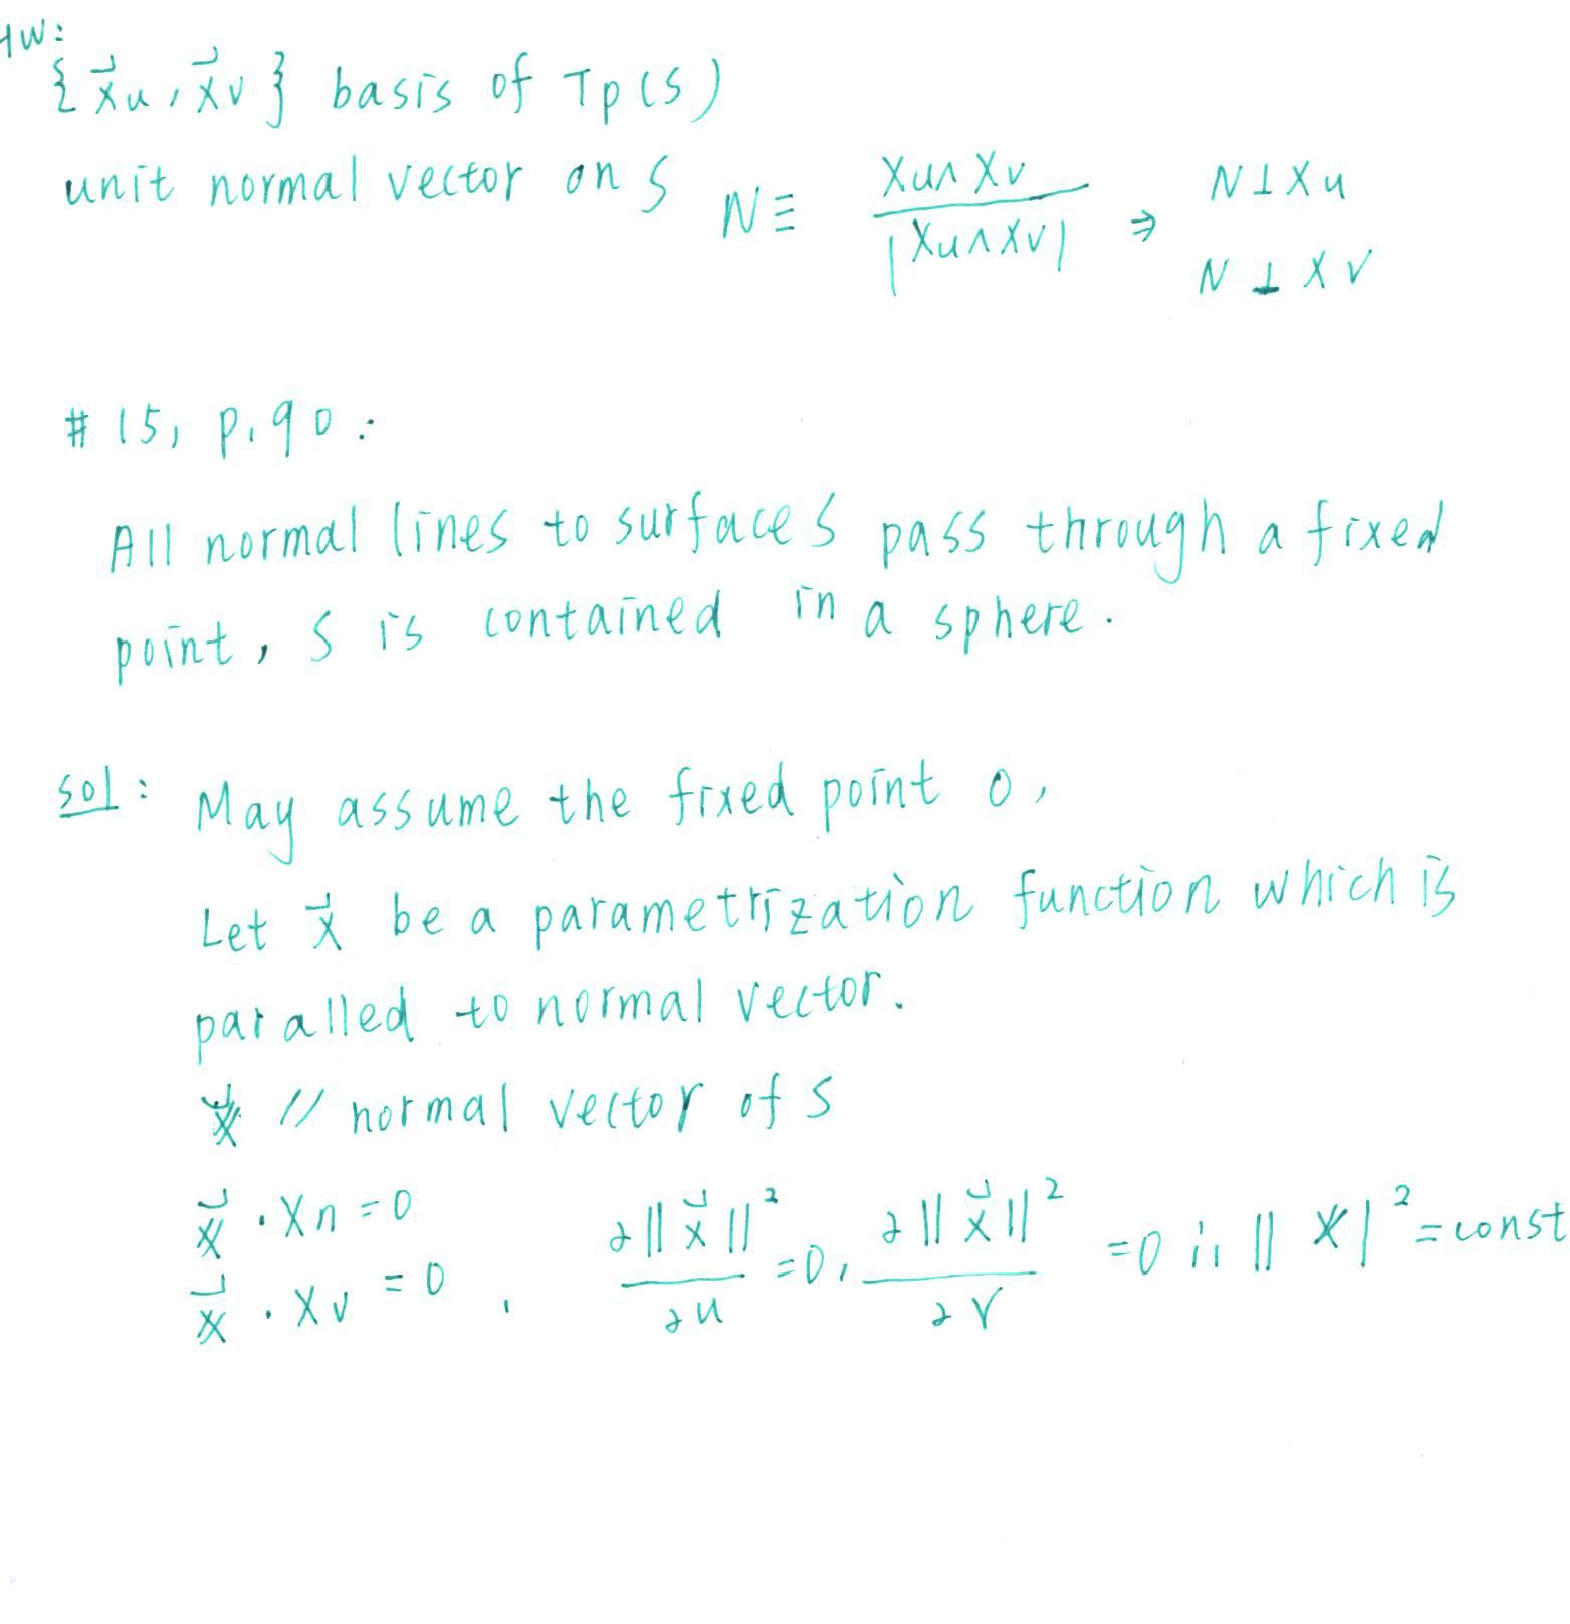 HW:
{x⃗u, x⃗v} basis of Tp(S)
unit normal vector on S N ≡ Xu∧Xv / |Xu∧Xv| ⇒ N⊥Xu
N⊥Xv
#15, p.90:
All normal lines to surface S pass through a fixed
point, S is contained in a sphere.
sol: May assume the fixed point 0,
Let x⃗ be a parametrization function which is
paralled to normal vector.
x⃗ // normal vector of S
x⃗ · Xn = 0
x⃗ · Xv = 0 , ∂||x⃗||² / ∂u = 0, ∂||x⃗||² / ∂v = 0 ∴ || x|² = const